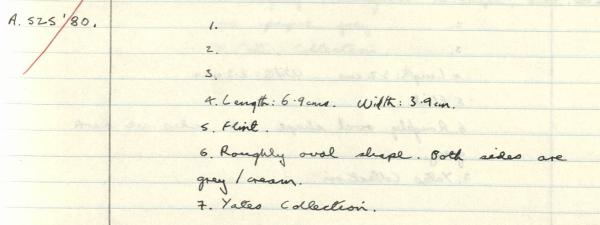 A. 525 '80.
1.
2.
3.
4. Length: 6.9cms. Width: 3.9cm.
5. Flint.
6. Roughly oval shape. Both sides are
grey / cream.
7. Yates Collection.